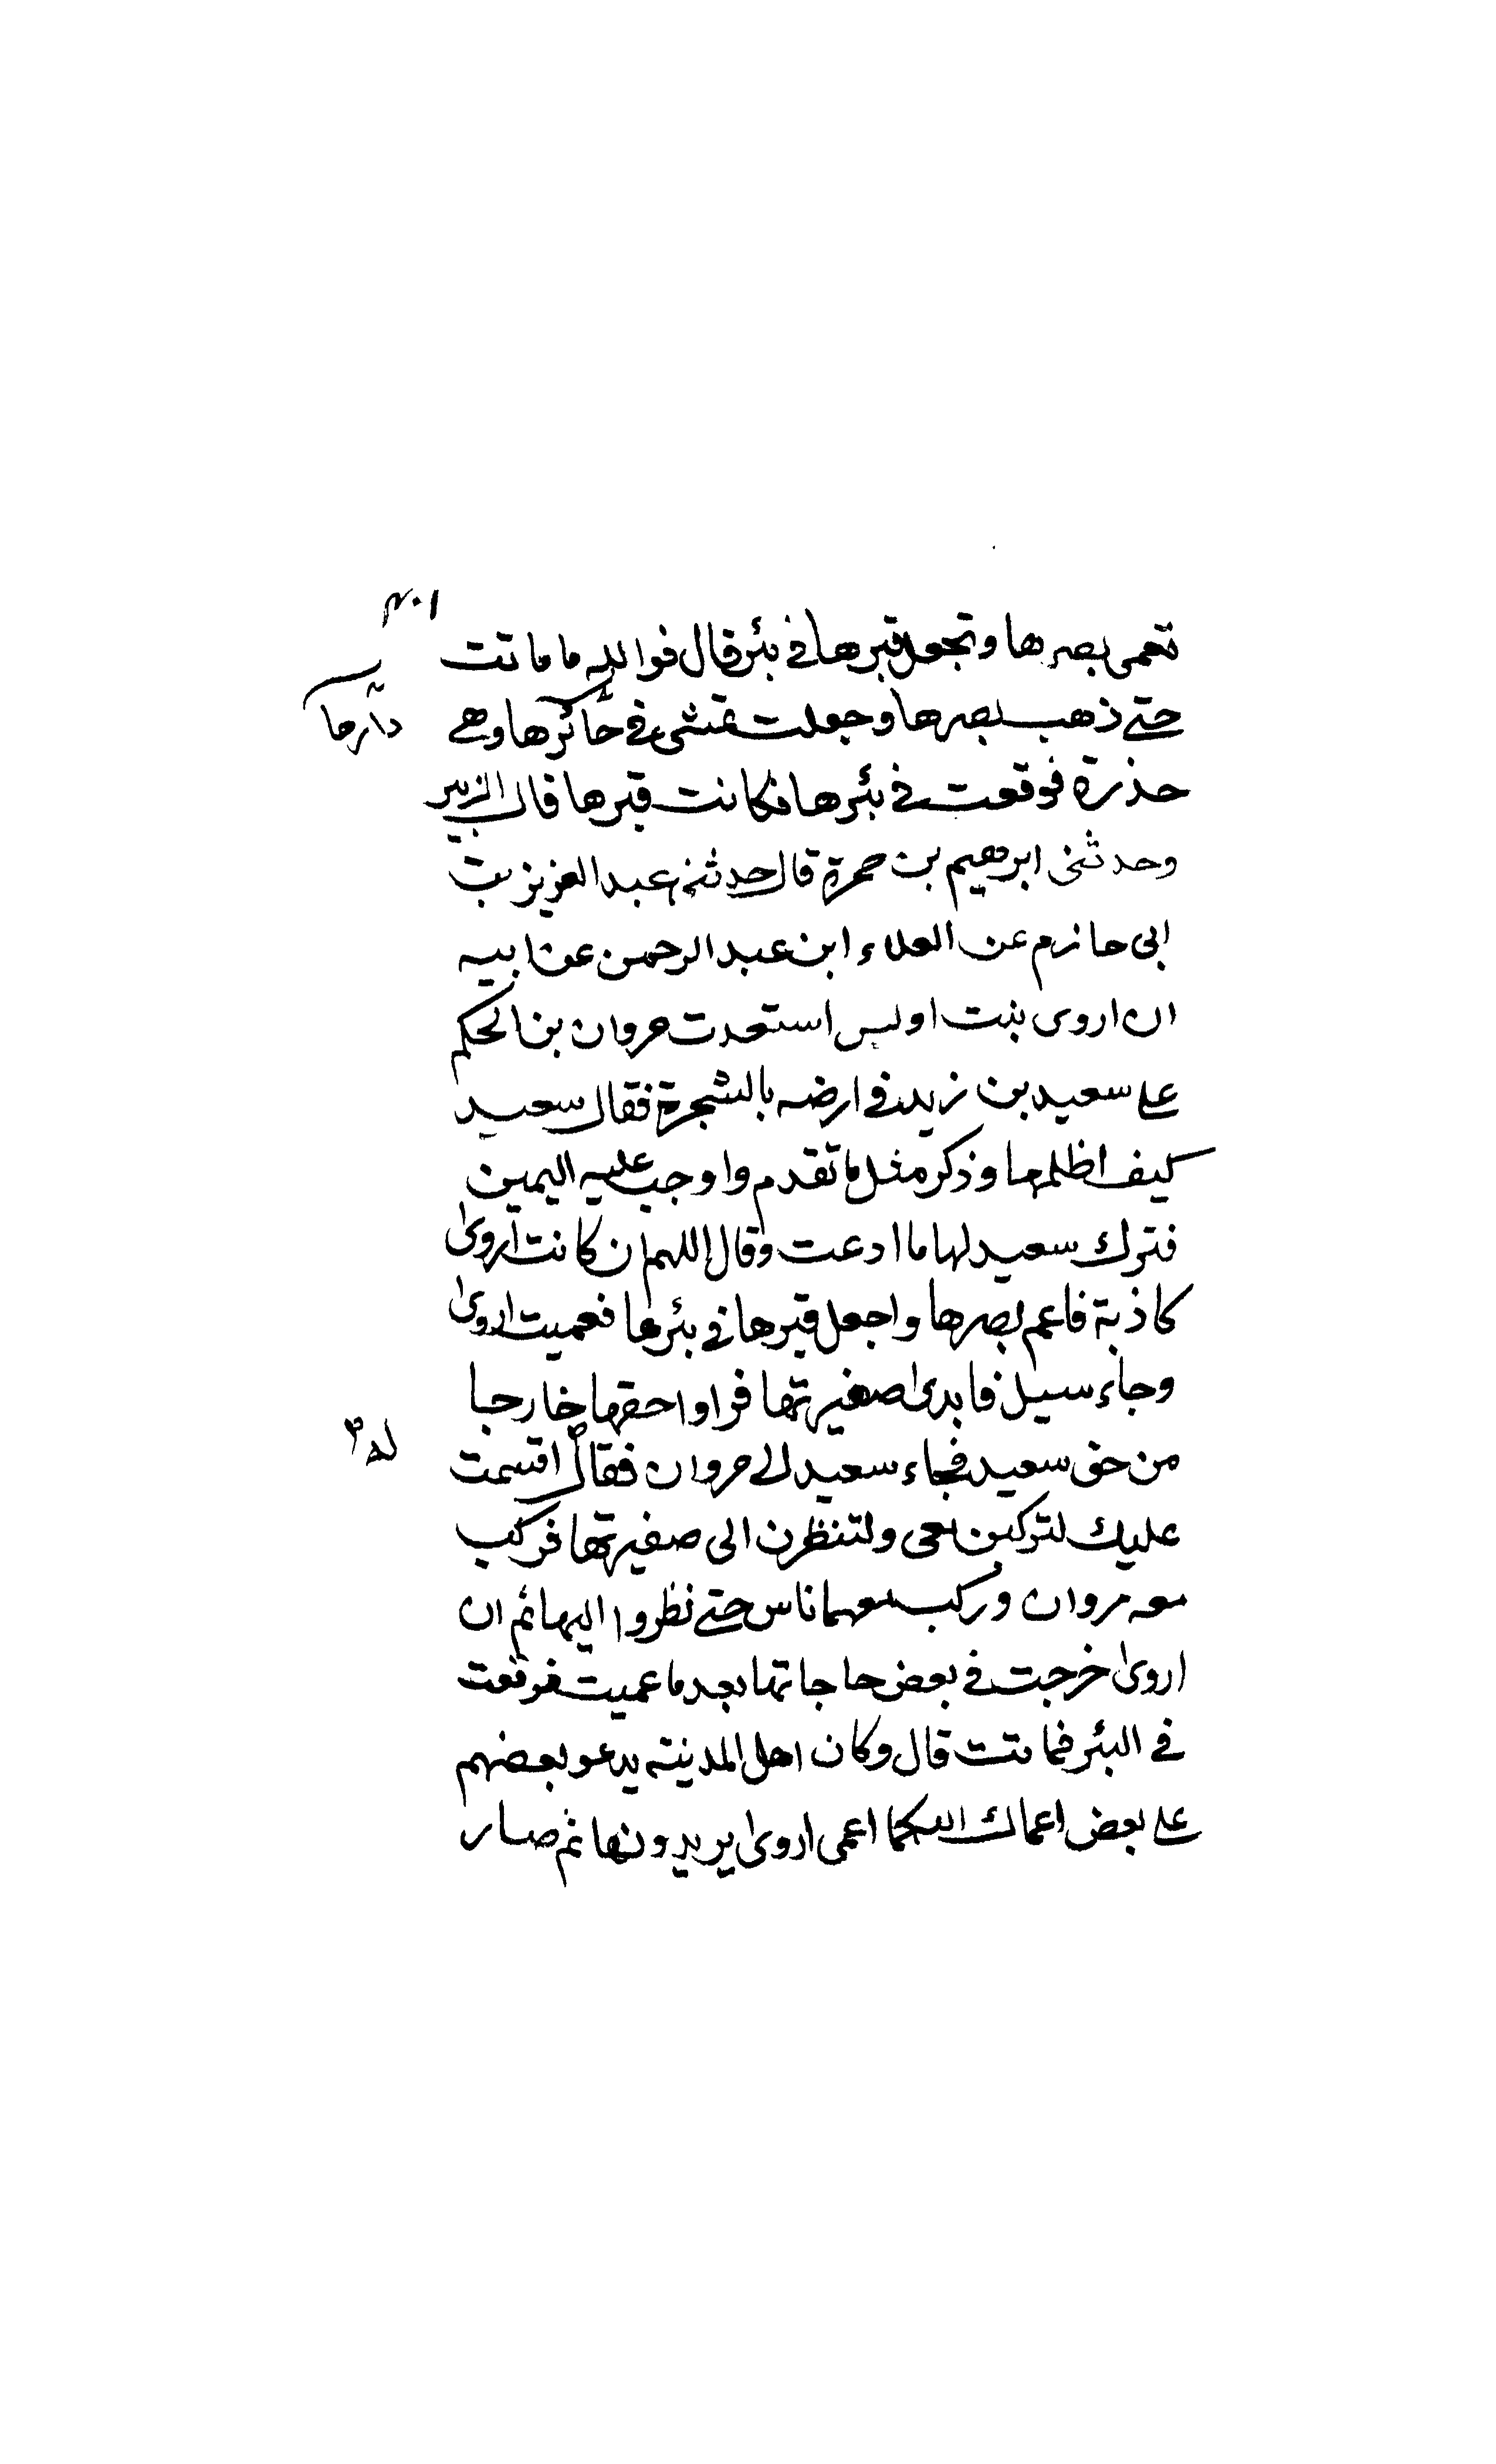 تعمى بصرها وتجعل قبرها في بئر قال فوالله ما ماتت
حتى ذهب بصرها وجعلت تمشى في حائرها وهى
دارها
حذرة فوقعت في بئرها فكانت قبرها قال الزبير
وحدثنى ابرهيم بن حمزة قال حدثنى عبد العزيز بن
ابى حازم عن العلاء ابن عبد الرحمن عن ابيه
ان اروى بنت اويس استعدت مروان بن الحكم
على سعيد بن زيد في ارضه بالشجرة فقال سعيد
كيف اظلمها وذكر مثل ما تقدم واوجب عليه اليمين
فترك سعيد لها ما ادعت وقال اللهم ان كانت اروى
كاذبة فاعم بصرها واجعل قبرها في بئرها فعميت اروى
وجاء سيل فابدى صفيرتها فراوا حقها خارجا
من حق سعيد فجاء سعيد الى مروان فقال اقسمت
عليك لتركبن معى ولتنظرن الى صفيرتها فركب
معه مروان وركب معهما ناس حتى نظروا اليها ثم ان
اروى خرجت في بعض حاجاتها بعد ما عميت فوقعت
في البئر فماتت قال وكان اهل المدينة يدعو بعضهم
على بعض اعماك الله كما اعمى اروى يريدونها ثم صار